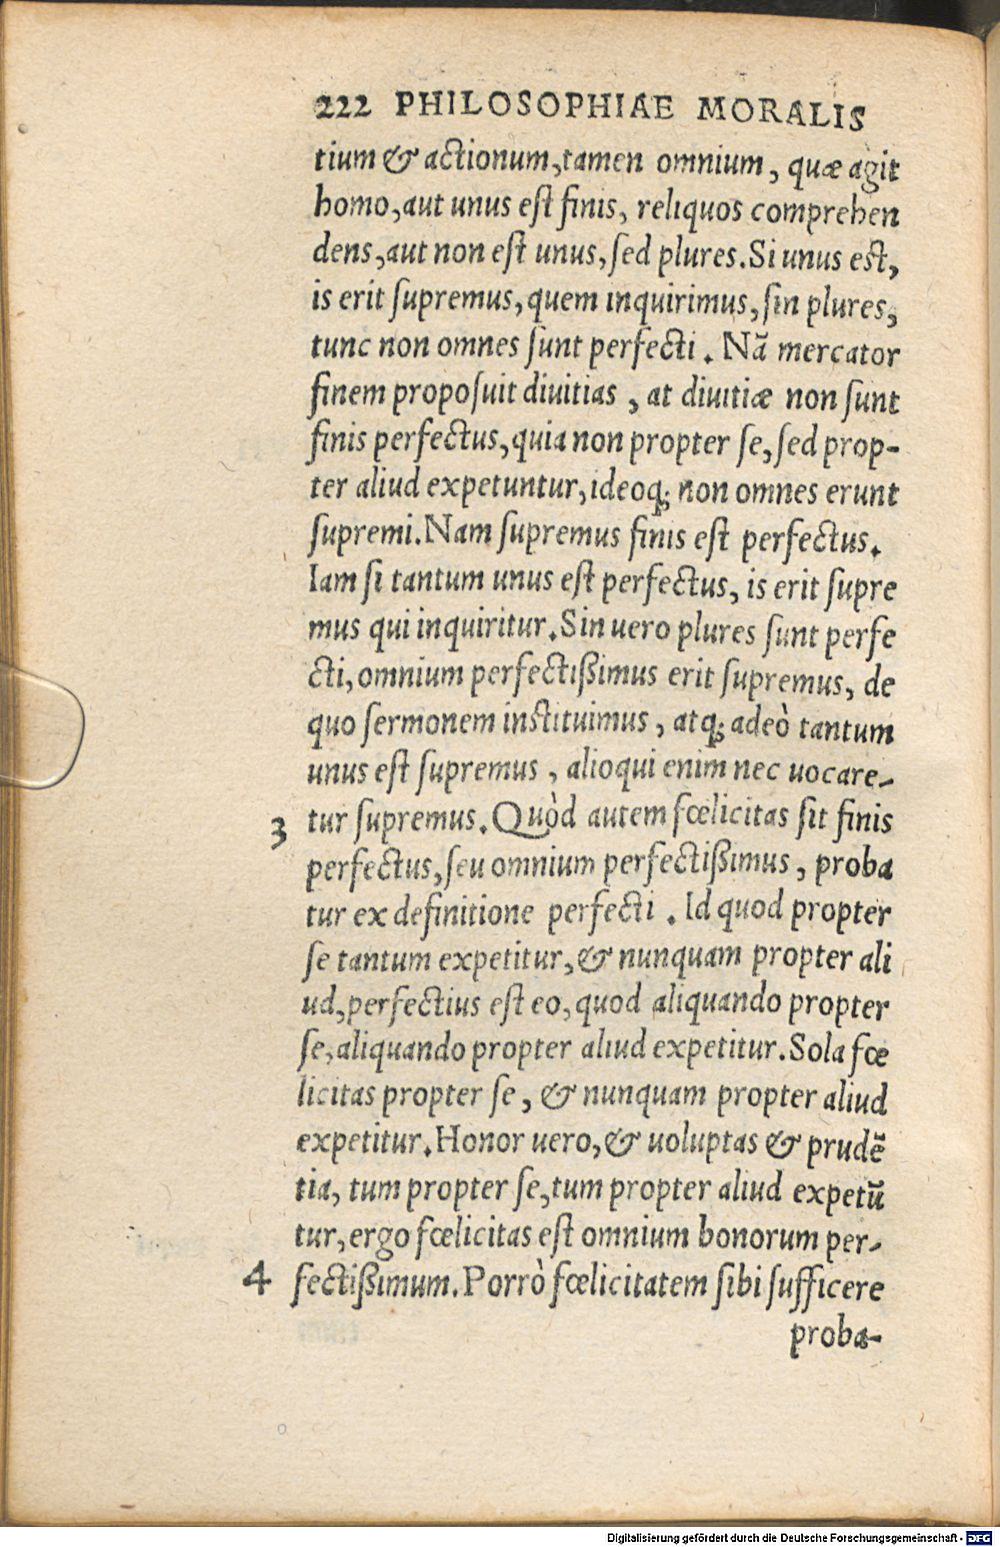 222 PHILOSOPHIAE MORALIS
tium & actionum, tamen omnium, quæ agit
homo, aut unus eſt finis, reliquos comprehen
dens, aut non eſt unus, ſed plures. Si unus est,
is erit ſupremus, quem inquirimus, ſin plures,
tunc non omnes ſunt perfecti. Nã mercator
finem propoſuit diuitias, at diuitiæ non ſunt
finis perfectus, quia non propter ſe, ſed prop-
ter aliud expetuntur, ideoq; non omnes erunt
ſupremi. Nam ſupremus finis eſt perfectus.
Iam ſi tantum unus eſt perfectus, is erit ſupre
mus qui inquiritur. Sin uero plures ſunt perfe
cti, omnium perfectißimus erit ſupremus, de
quo ſermonem instituimus, atq; adeò tantum
unus eſt ſupremus, alioqui enim nec uocare-
3 tur ſupremus. Quòd autem fœlicitas ſit finis
perfectus, ſeu omnium perfectißimus, proba
tur ex definitione perfecti. Id quod propter
ſe tantum expetitur, & nunquam propter ali
ud, perfectius eſt eo, quod aliquando propter
ſe, aliquando propter aliud expetitur. Sola fœ
licitas propter ſe, & nunquam propter aliud
expetitur. Honor uero, & uoluptas & prudẽ
tia, tum propter ſe, tum propter aliud expetũ
tur, ergo fœlicitas eſt omnium bonorum per-
4 fectißimum. Porrò fœlicitatem ſibi ſufficere
proba-
Digitalisierung gefördert durch die Deutsche Forschungsgemeinschaft - DFG